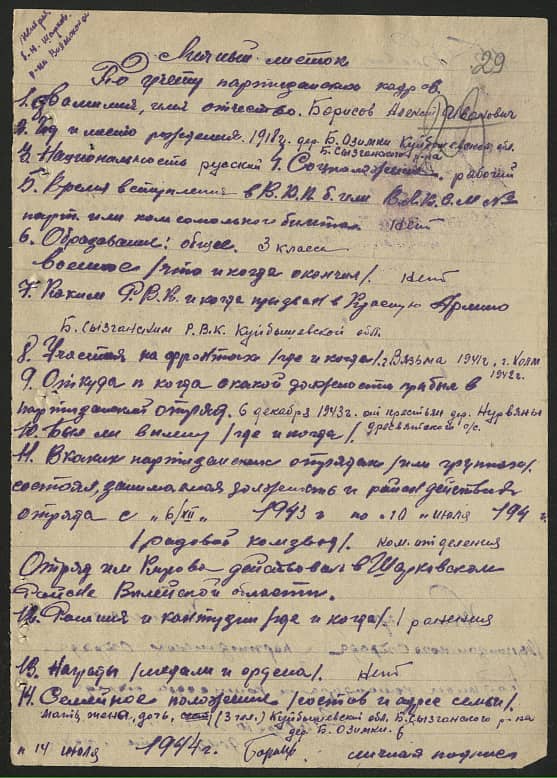 Личный листок
По учету партизанских кадров.
29
1. Фамилия, имя отчество. Борисов Алексей Иванович
2. Год и место рождения. 1918 г. дер. Б. Озимки Куйбышевской обл.
Б. Сызганского р-на
3. Национальность русский 4. Соцположение. рабочий
5. Время вступления в В.К.П.б. или В.Л.К.С.М №
парт. или комсомольского билета. Нет
6. Образование: общее. 3 класса
военное /что и когда окончил/. Нет
7. Каким Р.В.К. и когда призван в Красную Армию
Б. Сызганским Р.В.К. Куйбышевской обл.
8. Участия на фронтах /где и когда/. г. Вязьма 1941 г., г. Холм
1942 г.
9. Откуда и когда с какой должности прибыл в
партизанский отряд. 6 декабря 1943 г. от крестьян дер.
10. Был ли в плену /где и когда/. с/с.
11. В каких партизанских отрядах /или группах/
состоял, занимаемая должность и район действия
отряда с „6/XII" 1943 г по „10" июля 194 г.
/рядовой комзвода/. ком. отделения
Отряд им Кирова действовал в Шарковском
районе Вилейской области.
12. Ранения и контузии /где и когда/. 1 ранения
13. Награды /медали и ордена/. Нет
14. Семейное положение /состав и адрес семьи/.
Мать, жена, дочь, (3 чел.) Куйбышевской обл. Б. Сызганского р-на
дер. Б. Озимки.
„14 июля 1944 г. личная подпись